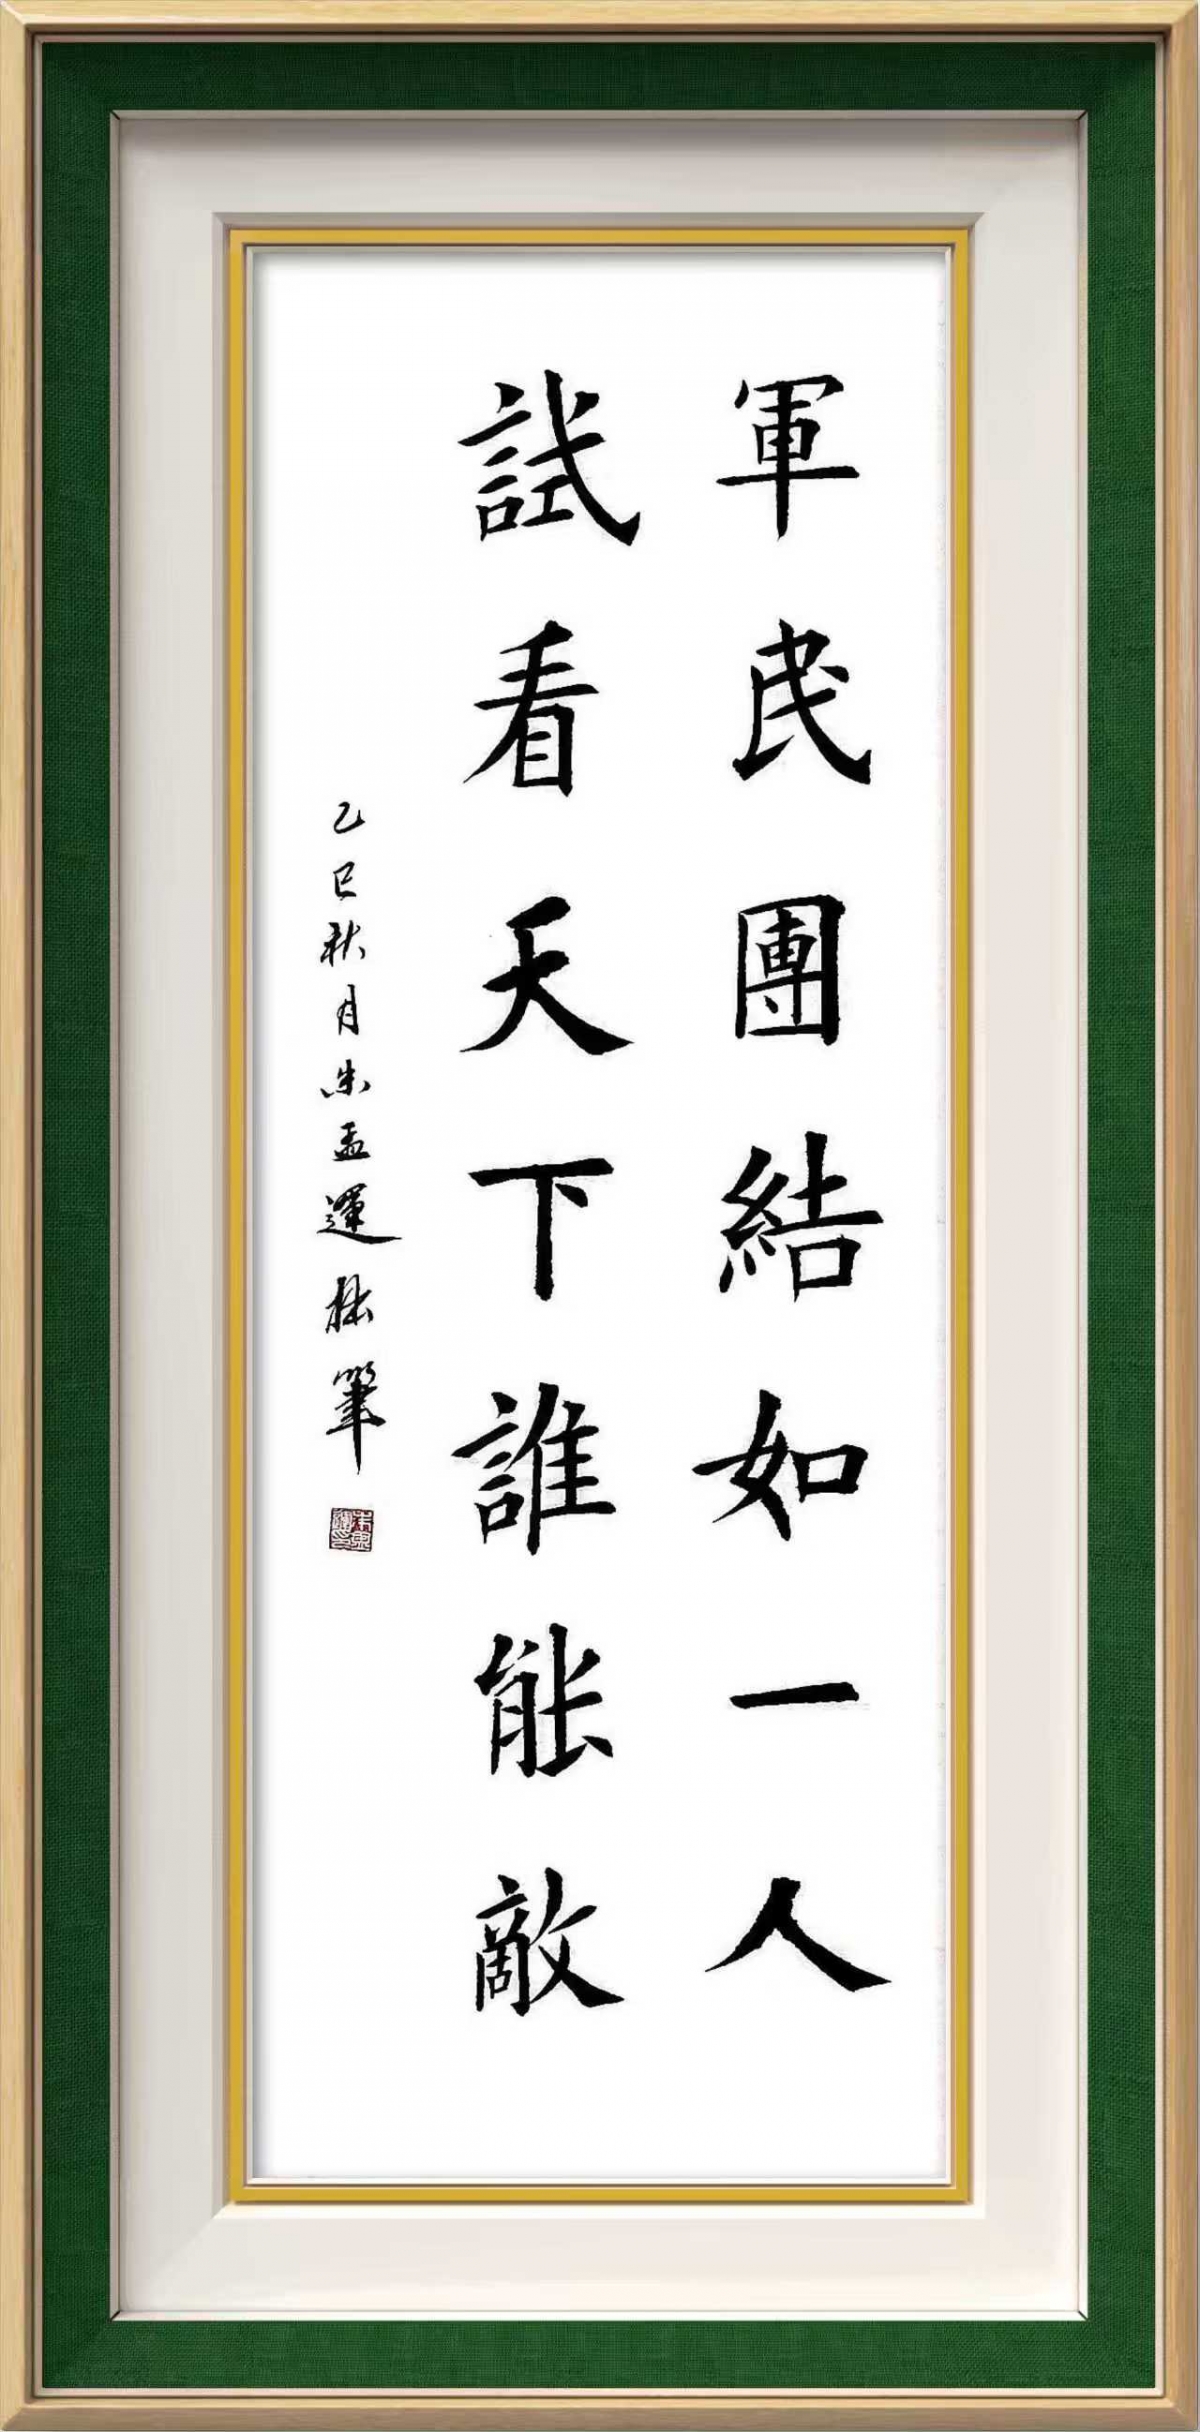 軍民團結如一人
試看天下誰能敵
乙巳秋月朱孟運拙筆